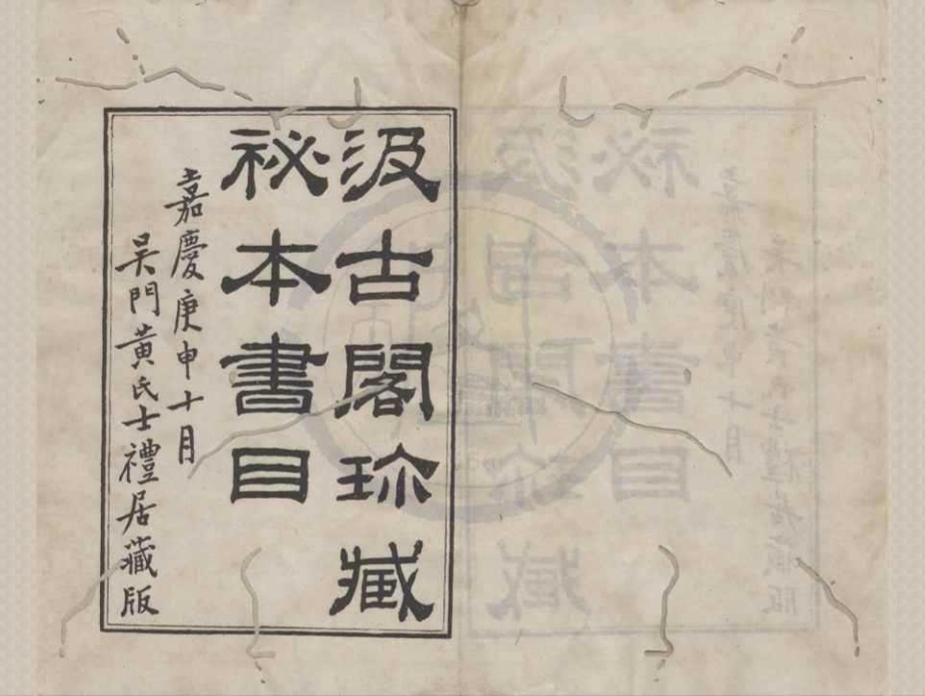 汲古閣珎藏
秘本書目
嘉慶庚申十月
吴門黄氏士禮居藏版